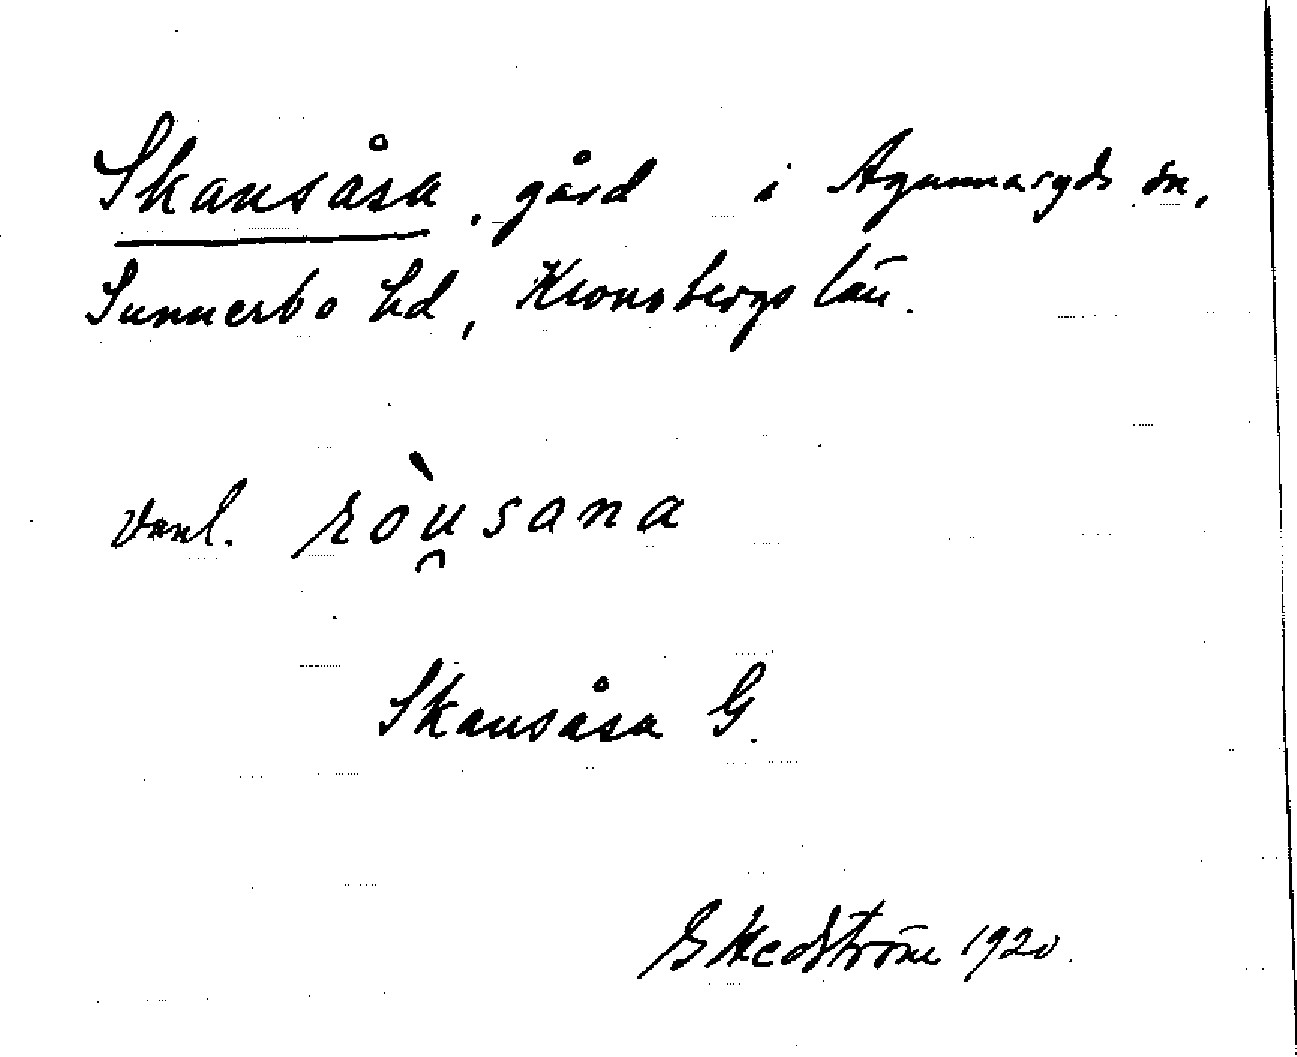 Skansåsa, gård i Agunnaryds sn,
Sunnerbo hd, Kronobergs län.
Vanl. ròu̯sana
Skansåsa G.
G Hedström 1920.